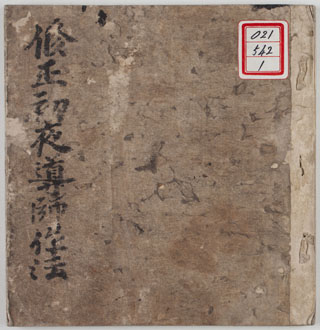 修正初夜導師作法
021
542
1